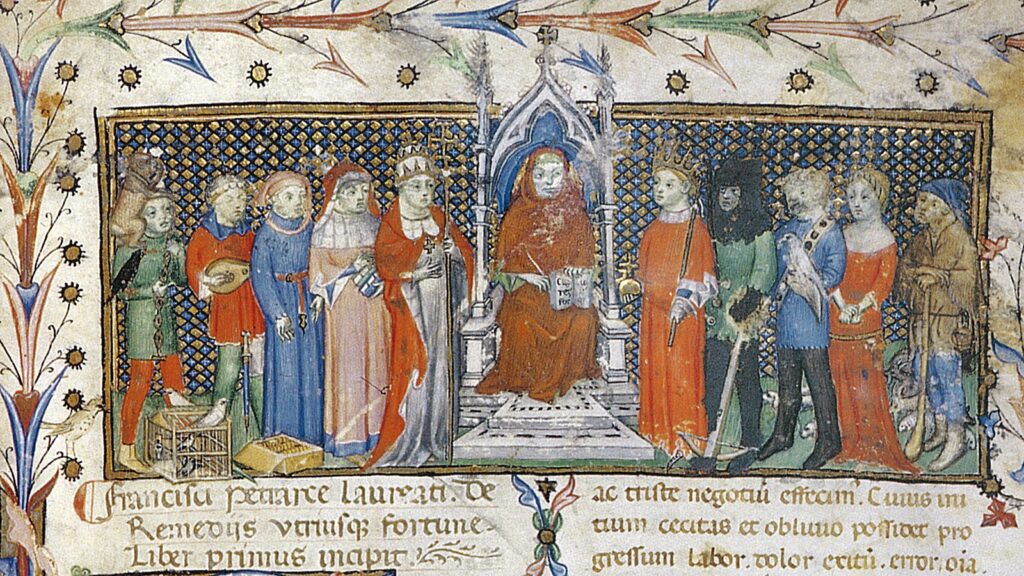 Francisci petrarce laureati. De
Remediis utriusque fortune.
Liber primus incipit.
ac triste negotiu effecim. Cuius ini
tium cecitas et oblivio possidet pro
gressum labor. dolor exitu. error. oia.